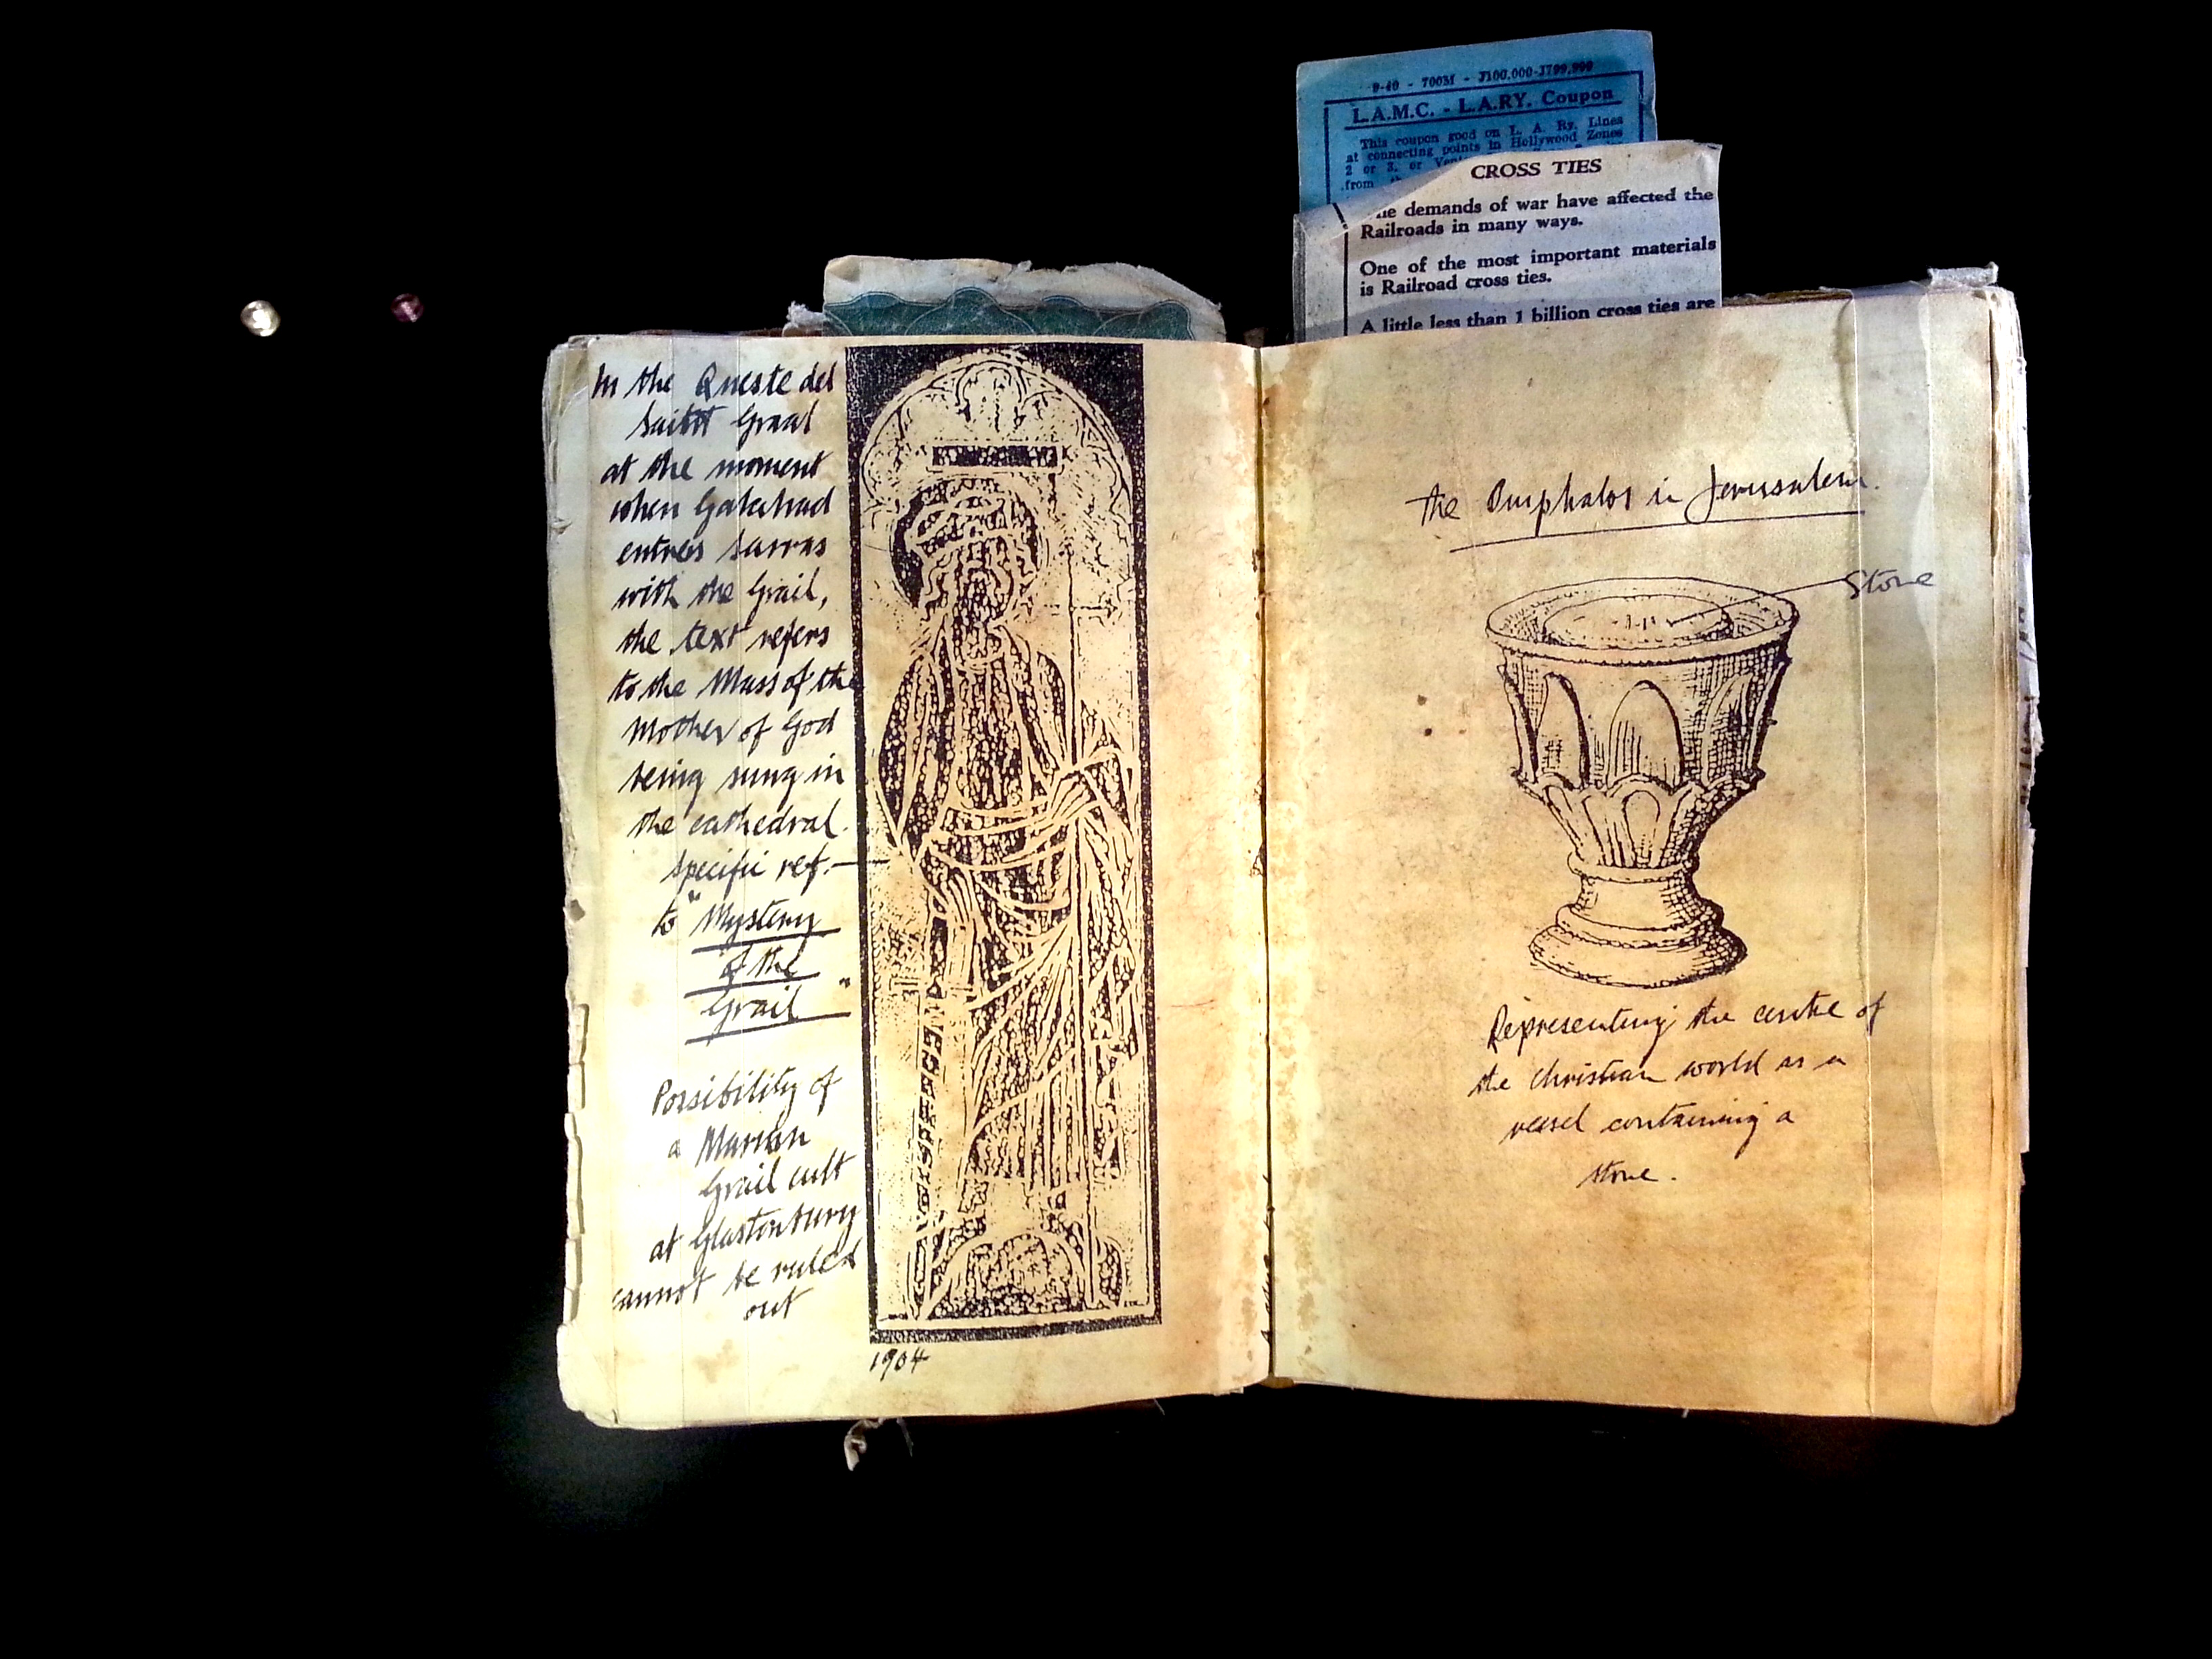 9-40 - 7003f - J100,000-J799,999
L.A.M.C. - L.A.RY. Coupon
This coupon good on L. A. Ry. Lines
at connecting points in Hollywood Zones
2 or 3, or
from
CROSS TIES
demands of war have affected the
Railroads in many ways.
One of the most important materials
is Railroad cross ties.
A little less than 1 billion cross ties are
In the Queste del
saint Graal
at the moment
when Galahad
enters sarras
with the Grail,
the text refers
to the Mass of the
Mother of God
being sung in
the cathedral.
specific ref.
to "Mystery
of the
Grail"
Possibility of
a Marian
Grail cult
at Glastonbury
cannot be ruled
out
1904
the Omphalos in Jerusalem.
Stone
Representing the centre of
the Christian world as a
vessel containing a
stone.